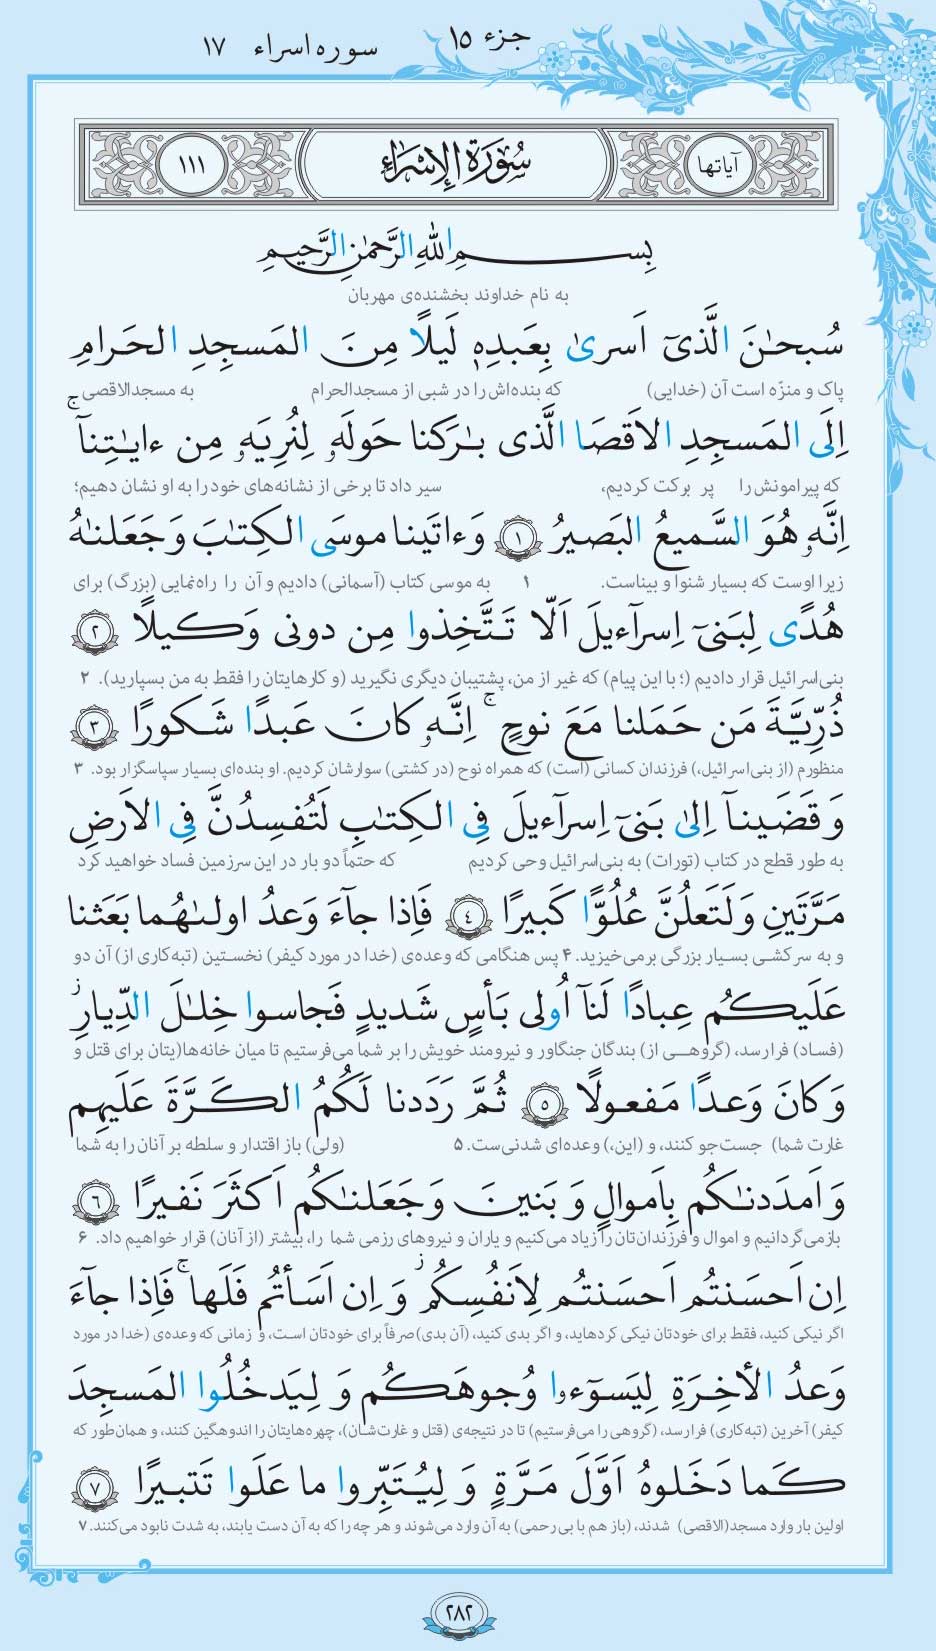 جزء ۱۵
سوره اسراء ۱۷
آیاتها
سُورَةُ الإِسْرَاءِ
۱۱۱
بِسمِ اللهِ الرَّحمٰنِ الرَّحيمِ
به نام خداوند بخشنده‌ی مهربان
سُبحٰنَ الَّذىٓ اَسرىٰ بِعَبدِهٖ لَيلًا مِنَ المَسجِدِ الحَرامِ
پاک و منزّه است آن (خدایی) که بنده‌اش را در شبی از مسجدالحرام به مسجدالاقصی
اِلَى المَسجِدِ الاَقصَا الَّذى بٰرَكنا حَولَهٗ لِنُرِيَهٗ مِن ءايٰتِنآ ۚ
که پیرامونش را پر برکت کردیم، سیر داد تا برخی از نشانه‌های خود را به او نشان دهیم؛
اِنَّهٗ هُوَ السَّميعُ البَصيرُ ﴿۱﴾ وَءاتَينا موسَى الكِتٰبَ وَ جَعَلنٰهُ
زیرا اوست که بسیار شنوا و بیناست. ۱ به موسی کتاب (آسمانی) دادیم و آن را راه‌نمایی (بزرگ) برای
هُدًى لِبَنىٓ اِسرآءيلَ اَلّا تَتَّخِذوا مِن دونى وَكيلًا ﴿۲﴾
بنی‌اسرائیل قرار دادیم (؛ با این پیام) که غیر از من، پشتیبان دیگری نگیرید (و کارهایتان را فقط به من بسپارید). ۲
ذُرِّيَّةَ مَن حَمَلنا مَعَ نوحٍ ۚ اِنَّهٗ كانَ عَبدًا شَكورًا ﴿۳﴾
منظورم (از بنی‌اسرائیل،) فرزندان کسانی (است) که همراه نوح (در کشتی) سوارشان کردیم. او بنده‌ای بسیار سپاسگزار بود. ۳
وَ قَضَينآ اِلىٰ بَنىٓ اِسرآءيلَ فِى الكِتٰبِ لَتُفسِدُنَّ فِى الاَرضِ
به طور قطع در کتاب (تورات) به بنی‌اسرائیل وحی کردیم که حتماً دو بار در این سرزمین فساد خواهید کرد
مَرَّتَينِ وَ لَتَعلُنَّ عُلُوًّا كَبيرًا ﴿٤﴾ فَاِذا جآءَ وَعدُ اولىٰهُما بَعَثنا
و به سرکشی بسیار بزرگی برمی‌خیزید. ۴ پس هنگامی که وعده‌ی (خدا در مورد کیفر) نخستین (تبه‌کاری از) آن دو
عَلَيكُم عِبادًا لَنآ اُولى بَأسٍ شَديدٍ فَجاسوا خِلٰلَ الدِّيارِ ۚ
(فساد) فرا رسد، (گروهی از) بندگان جنگاور و نیرومند خویش را بر شما می‌فرستیم تا میان خانه‌ها(یتان برای قتل و
وَ كانَ وَعدًا مَفعولًا ﴿٥﴾ ثُمَّ رَدَدنا لَكُمُ الكَرَّةَ عَلَيهِم
غارت شما) جست‌جو کنند، و (این،) وعده‌ای شدنی‌ست. ۵ (ولی) باز اقتدار و سلطه بر آنان را به شما
وَ اَمدَدنٰكُم بِاَموالٍ وَ بَنينَ وَ جَعَلنٰكُم اَكثَرَ نَفيرًا ﴿٦﴾
بازمی‌گردانیم و اموال و فرزندان‌تان را زیاد می‌کنیم و یاران و نیروهای رزمی شما را، بیشتر (از آنان) قرار خواهیم داد. ۶
اِن اَحسَنتُم اَحسَنتُم لِاَنفُسِكُم ۖ وَ اِن اَسَأتُم فَلَها ۚ فَاِذا جآءَ
اگر نیکی کنید، فقط برای خودتان نیکی کرده‌اید، و اگر بدی کنید، (آن بدی) صرفاً برای خودتان است، و زمانی که وعده‌ی (خدا در مورد
وَعدُ الأخِرَةِ لِيَسوٓءوا وُجوهَكُم وَ لِيَدخُلُوا المَسجِدَ
کیفر) آخرین (تبه‌کاری) فرا رسد، (گروهی را می‌فرستیم) تا در نتیجه‌ی (قتل و غارت‌شان)، چهره‌هایتان را اندوهگین کنند، و همان‌طور که
كَما دَخَلوهُ اَوَّلَ مَرَّةٍ وَ لِيُتَبِّروا ما عَلَوا تَتبيرًا ﴿۷﴾
اولین بار وارد مسجد(الاقصی) شدند، (باز هم با بی‌رحمی) به آن وارد می‌شوند و هر چه را که به آن دست یابند، به شدت نابود می‌کنند. ۷
۲۸۲